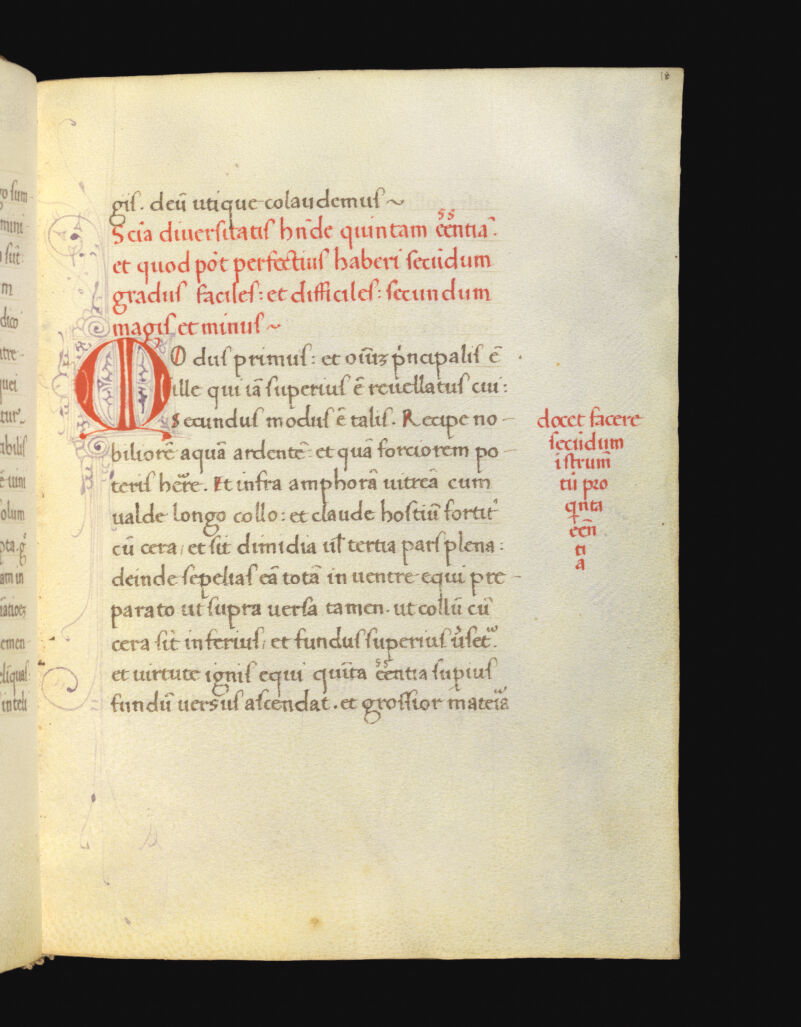 18
gis. deū utique colaudemus ~
Scīa diuersitatis hn̄de quintam eēntiā.
et quod pōt perfectius haberi secūdum
gradus faciles: et difficiles: secundum
magis et minus ~
MOdus primus: et oīuꝫ pīncipalis ē
ille qui iā superius ē reuellatus cui:
Secundus modus ē talis. Recipe no-
biliorē aquā ardentē et quā forciorem po-
teris hēre. Et infra amphorā uitreā cum
ualde longo collo: et claude hostiū fortit᷑
cū cera, et sit dimidia ul̄ tertia pars plena:
deinde sepelias eā totā in uentre equi pre-
parato ut supra uersa tamen. ut collū cū
cera sit inferius, et fundus superius
et uirtute ignis equi quīta eēntia supius
fundū uersus ascendat. et grossior mateīa
docet facere
secūdum
istrum̄
tū pro
qīnta
eēn
ti
a